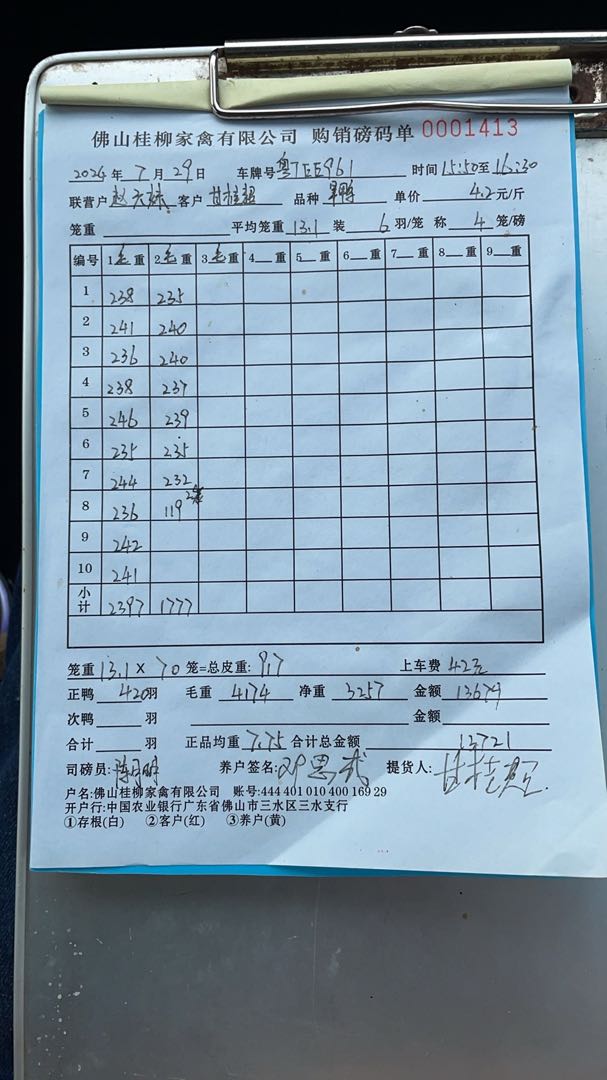 佛山桂柳家禽有限公司 购销磅码单 0001413
2024年7月29日 车牌号粤TEE961 时间15:50至16:30
联营户 客户甘桂超 品种 单价4.2元/斤
笼重 平均笼重13.1 装6羽/笼 称4笼/磅
编号 1毛重 2毛重 3毛重 4重 5重 6重 7重 8重 9重
1 238 235
2 241 240
3 236 240
4 238 237
5 246 239
6 235 235
7 244 232
8 236 119 2笼
9 242
10 241
小计 2397 1777
笼重13.1×70笼=总皮重:917 上车费42元
正鸭420羽 毛重4174 净重3257 金额13679
次鸭羽 金额
合计羽 正品均重7.75 合计总金额13721
司磅员: 养户签名:邓思武 提货人:甘桂超
户名:佛山桂柳家禽有限公司 账号:444 401 010 400 169 29
开户行:中国农业银行广东省佛山市三水区三水支行
①存根(白) ②客户(红) ③养户(黄)